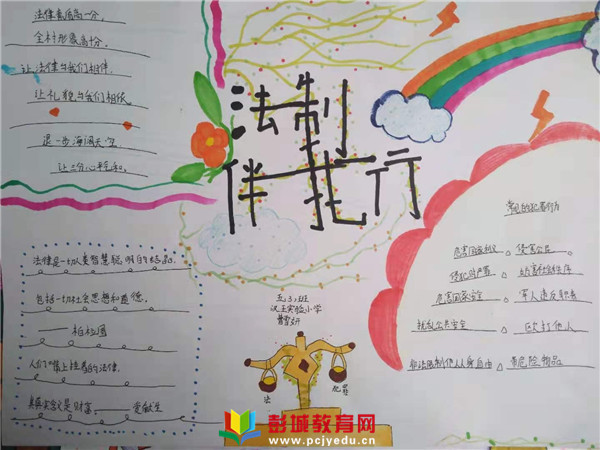 法律素质高一分,
全社形象高一份,
让法律与我们相伴,
让礼貌与我们相依。
退一步海阔天空,
让三分心平气和。
法制
伴我行
法律是一切人类智慧聪明的结晶,
包括一切社会思想和道德。
——柏拉图
人们嘴上挂着的法律,
其真实含义是财富。——爱献生
五,3,班
汉王实验小学
曹雪妍
法
犯罪
常见的犯罪行为
危害国家利益、侵害公民
侵犯财产罪
危害国家安全、军人违反职责
扰乱公共安全、殴打他人
非法限制他人人身自由、危险物品
彭城教育网
www.pcjyedu.cn